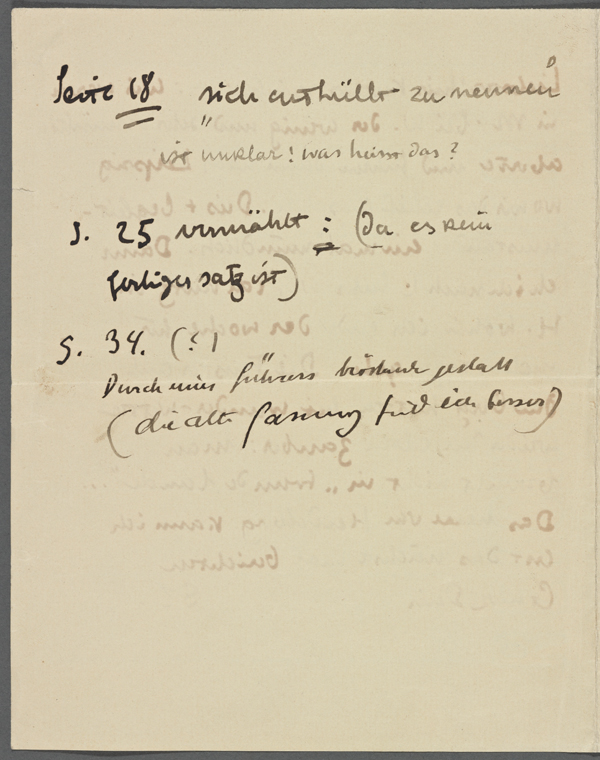 Seite 18 sich enthüllt zu nennen
ist unklar! was heisst das?
S. 25 vermählt : (da es kein
fertiger satz ist)
S. 34. (?)
Durch eines führers tröstende gestalt
(die alte fassung find ich besser)